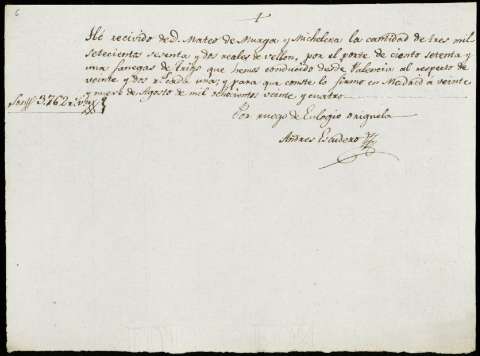 6
He recivido de D. Mateo de Murga y Michelena la cantidad de tres mil
setecientos sesenta y dos reales de vellon, por el porte de ciento setenta y
una fanegas de trigo que hemos conducido desde Valencia al respecto de
veinte y dos r.s cada una; y para que conste lo firmo en Madrid a veinte
y nueve de Agosto de mil ochocientos veinte y cuatro.
Son 3.762 r.s v.on
Por ruego de Eulogio Origuela
Andres Escudero